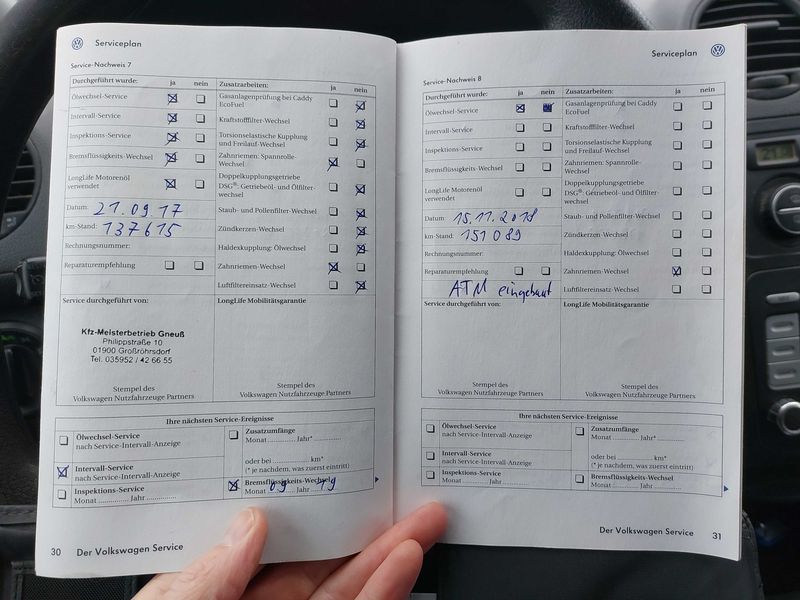 Serviceplan
Service-Nachweis 7
Durchgeführt wurde: ja nein
Ölwechsel-Service
Intervall-Service
Inspektions-Service
Bremsflüssigkeits-Wechsel
LongLife Motorenöl
verwendet
Datum: 21.09.17
km-Stand: 137615
Rechnungsnummer:
Reparaturempfehlung
Zusatzarbeiten: ja nein
Gasanlagenprüfung bei Caddy
EcoFuel
Kraftstofffilter-Wechsel
Torsionselastische Kupplung
und Freilauf-Wechsel
Zahnriemen: Spannrolle-
Wechsel
Doppelkupplungsgetriebe
DSG®: Getriebeöl- und Ölfilter-
wechsel
Staub- und Pollenfilter-Wechsel
Zündkerzen-Wechsel
Haldexkupplung: Ölwechsel
Zahnriemen-Wechsel
Luftfiltereinsatz-Wechsel
Service durchgeführt von:
Kfz-Meisterbetrieb Gneuß
Philippstraße 10
01900 Großröhrsdorf
Tel. 035952 / 42 66 55
Stempel des
Volkswagen Nutzfahrzeuge Partners
LongLife Mobilitätsgarantie
Stempel des
Volkswagen Nutzfahrzeuge Partners
Ihre nächsten Service-Ereignisse
Ölwechsel-Service
nach Service-Intervall-Anzeige
Intervall-Service
nach Service-Intervall-Anzeige
Inspektions-Service
Monat .............. Jahr ..............
Zusatzumfänge
Monat .............. Jahr* ..............
oder bei .............. km*
(* je nachdem, was zuerst eintritt)
Bremsflüssigkeits-Wechsel
Monat 09 Jahr 19
30 Der Volkswagen Service
Serviceplan
Service-Nachweis 8
Durchgeführt wurde: ja nein
Ölwechsel-Service
Intervall-Service
Inspektions-Service
Bremsflüssigkeits-Wechsel
LongLife Motorenöl
verwendet
Datum: 15.11.2018
km-Stand: 151089
Rechnungsnummer:
Reparaturempfehlung
ATM eingebaut
Zusatzarbeiten: ja nein
Gasanlagenprüfung bei Caddy
EcoFuel
Kraftstofffilter-Wechsel
Torsionselastische Kupplung
und Freilauf-Wechsel
Zahnriemen: Spannrolle-
Wechsel
Doppelkupplungsgetriebe
DSG®: Getriebeöl- und Ölfilter-
wechsel
Staub- und Pollenfilter-Wechsel
Zündkerzen-Wechsel
Haldexkupplung: Ölwechsel
Zahnriemen-Wechsel
Luftfiltereinsatz-Wechsel
Service durchgeführt von:
Stempel des
Volkswagen Nutzfahrzeuge Partners
LongLife Mobilitätsgarantie
Stempel des
Volkswagen Nutzfahrzeuge Partners
Ihre nächsten Service-Ereignisse
Ölwechsel-Service
nach Service-Intervall-Anzeige
Intervall-Service
nach Service-Intervall-Anzeige
Inspektions-Service
Monat .............. Jahr ..............
Zusatzumfänge
Monat .............. Jahr* ..............
oder bei .............. km*
(* je nachdem, was zuerst eintritt)
Bremsflüssigkeits-Wechsel
Monat .............. Jahr ..............
Der Volkswagen Service 31